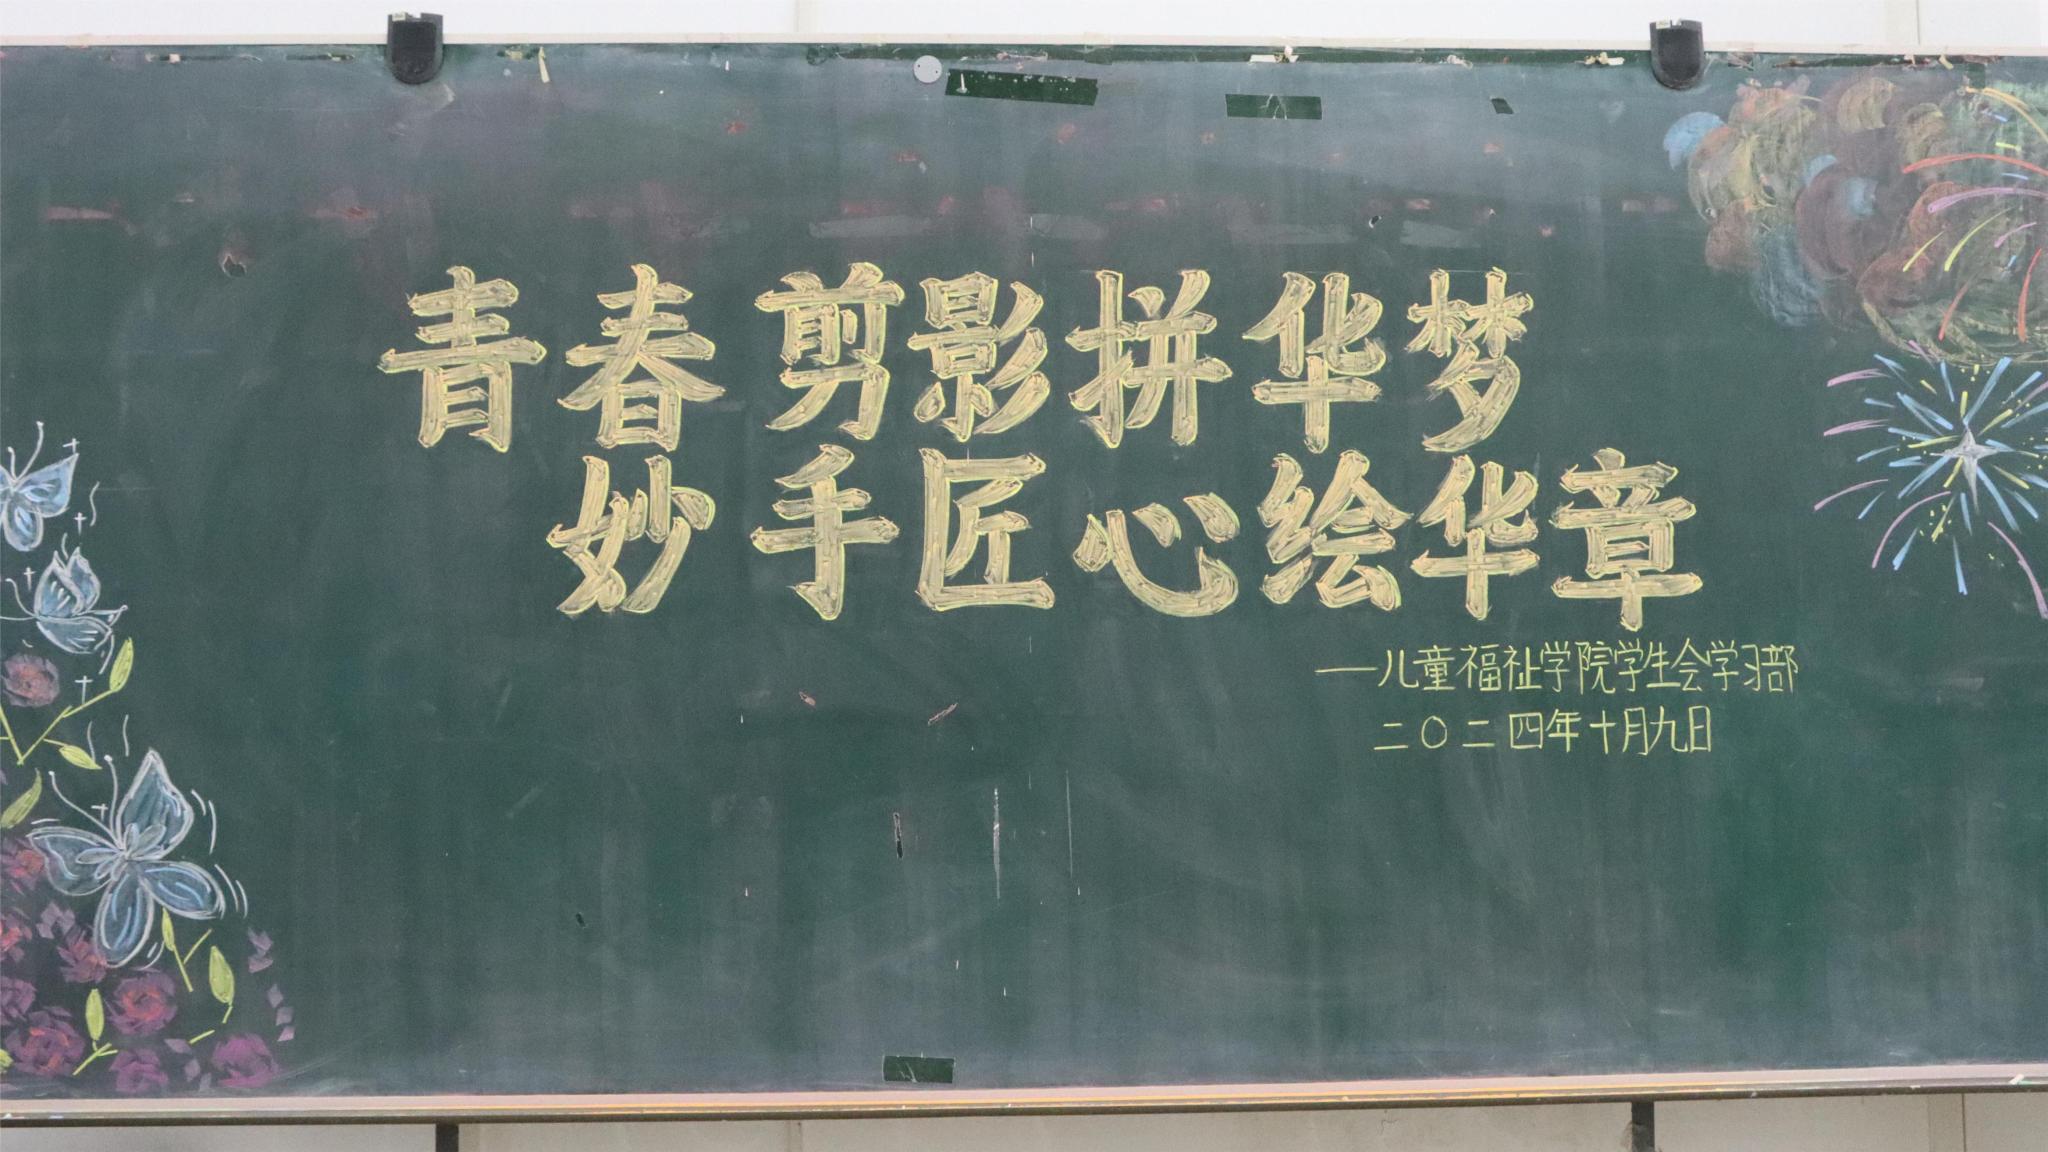 青春剪影拼华梦
妙手匠心绘华章
—儿童福祉学院学生会学习部
二〇二四年十月九日